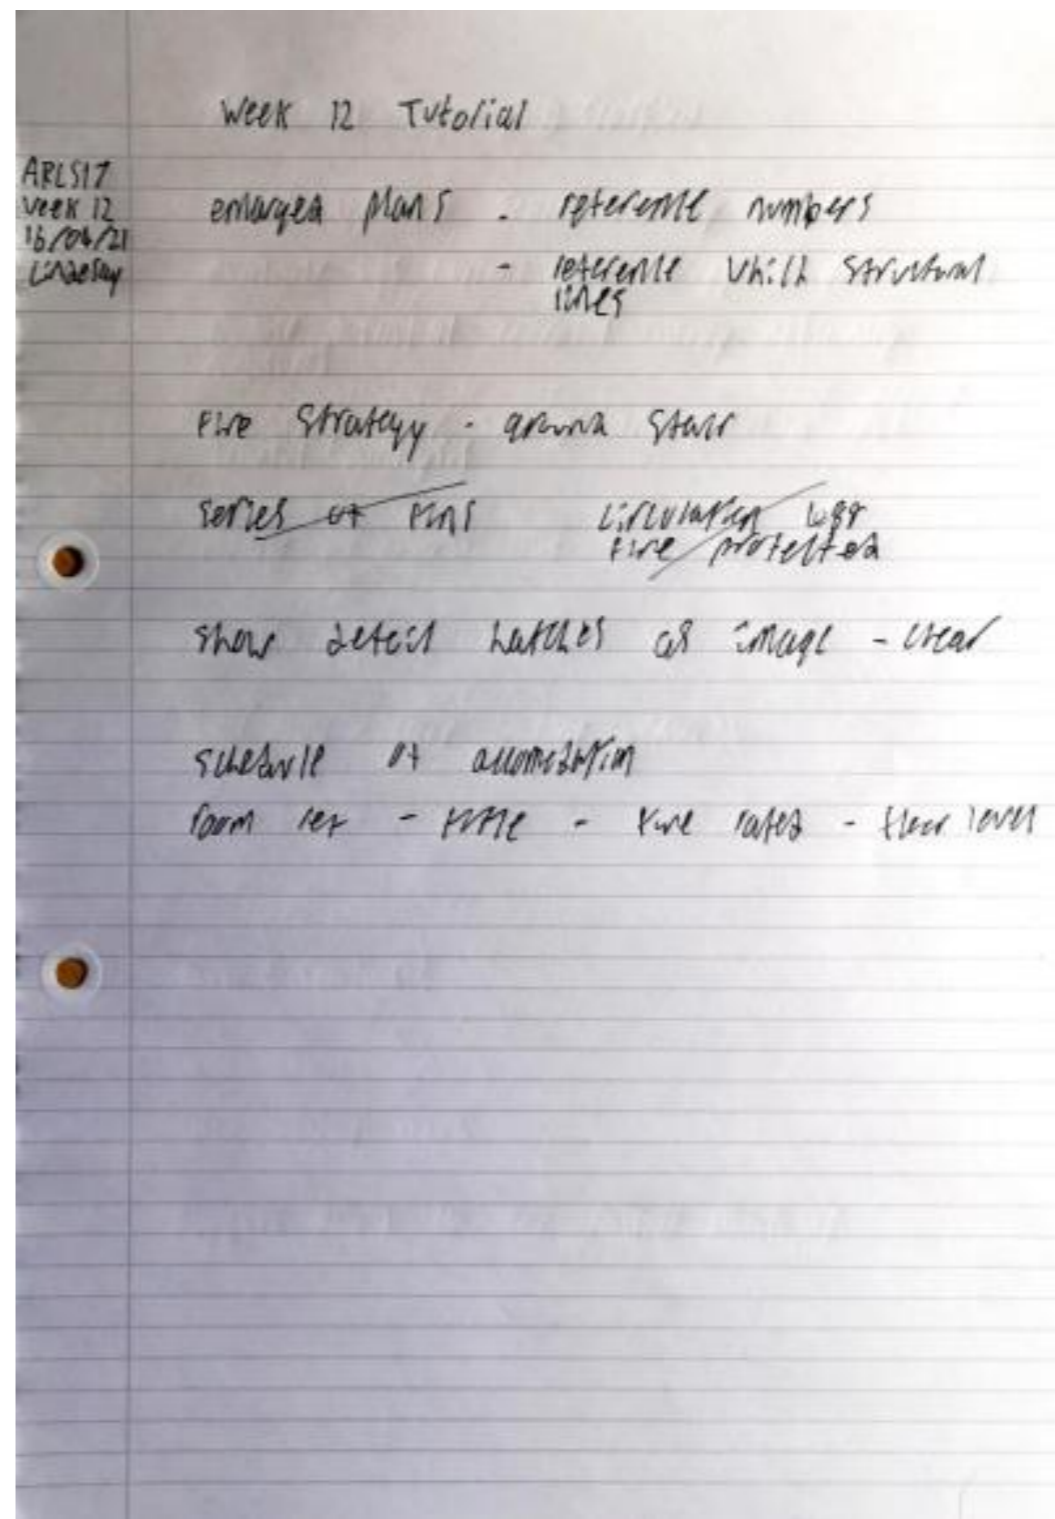 Week 12 Tutorial
ARC517
Week 12
16/04/21
Lindesay
enlarged plans - reference numbers
- reference which structural
lines
Fire Strategy - around stair
series of
circulation
fire protected
show detail hatches as image - clear
schedule of accomodation
room ref - title - fire rated - floor level